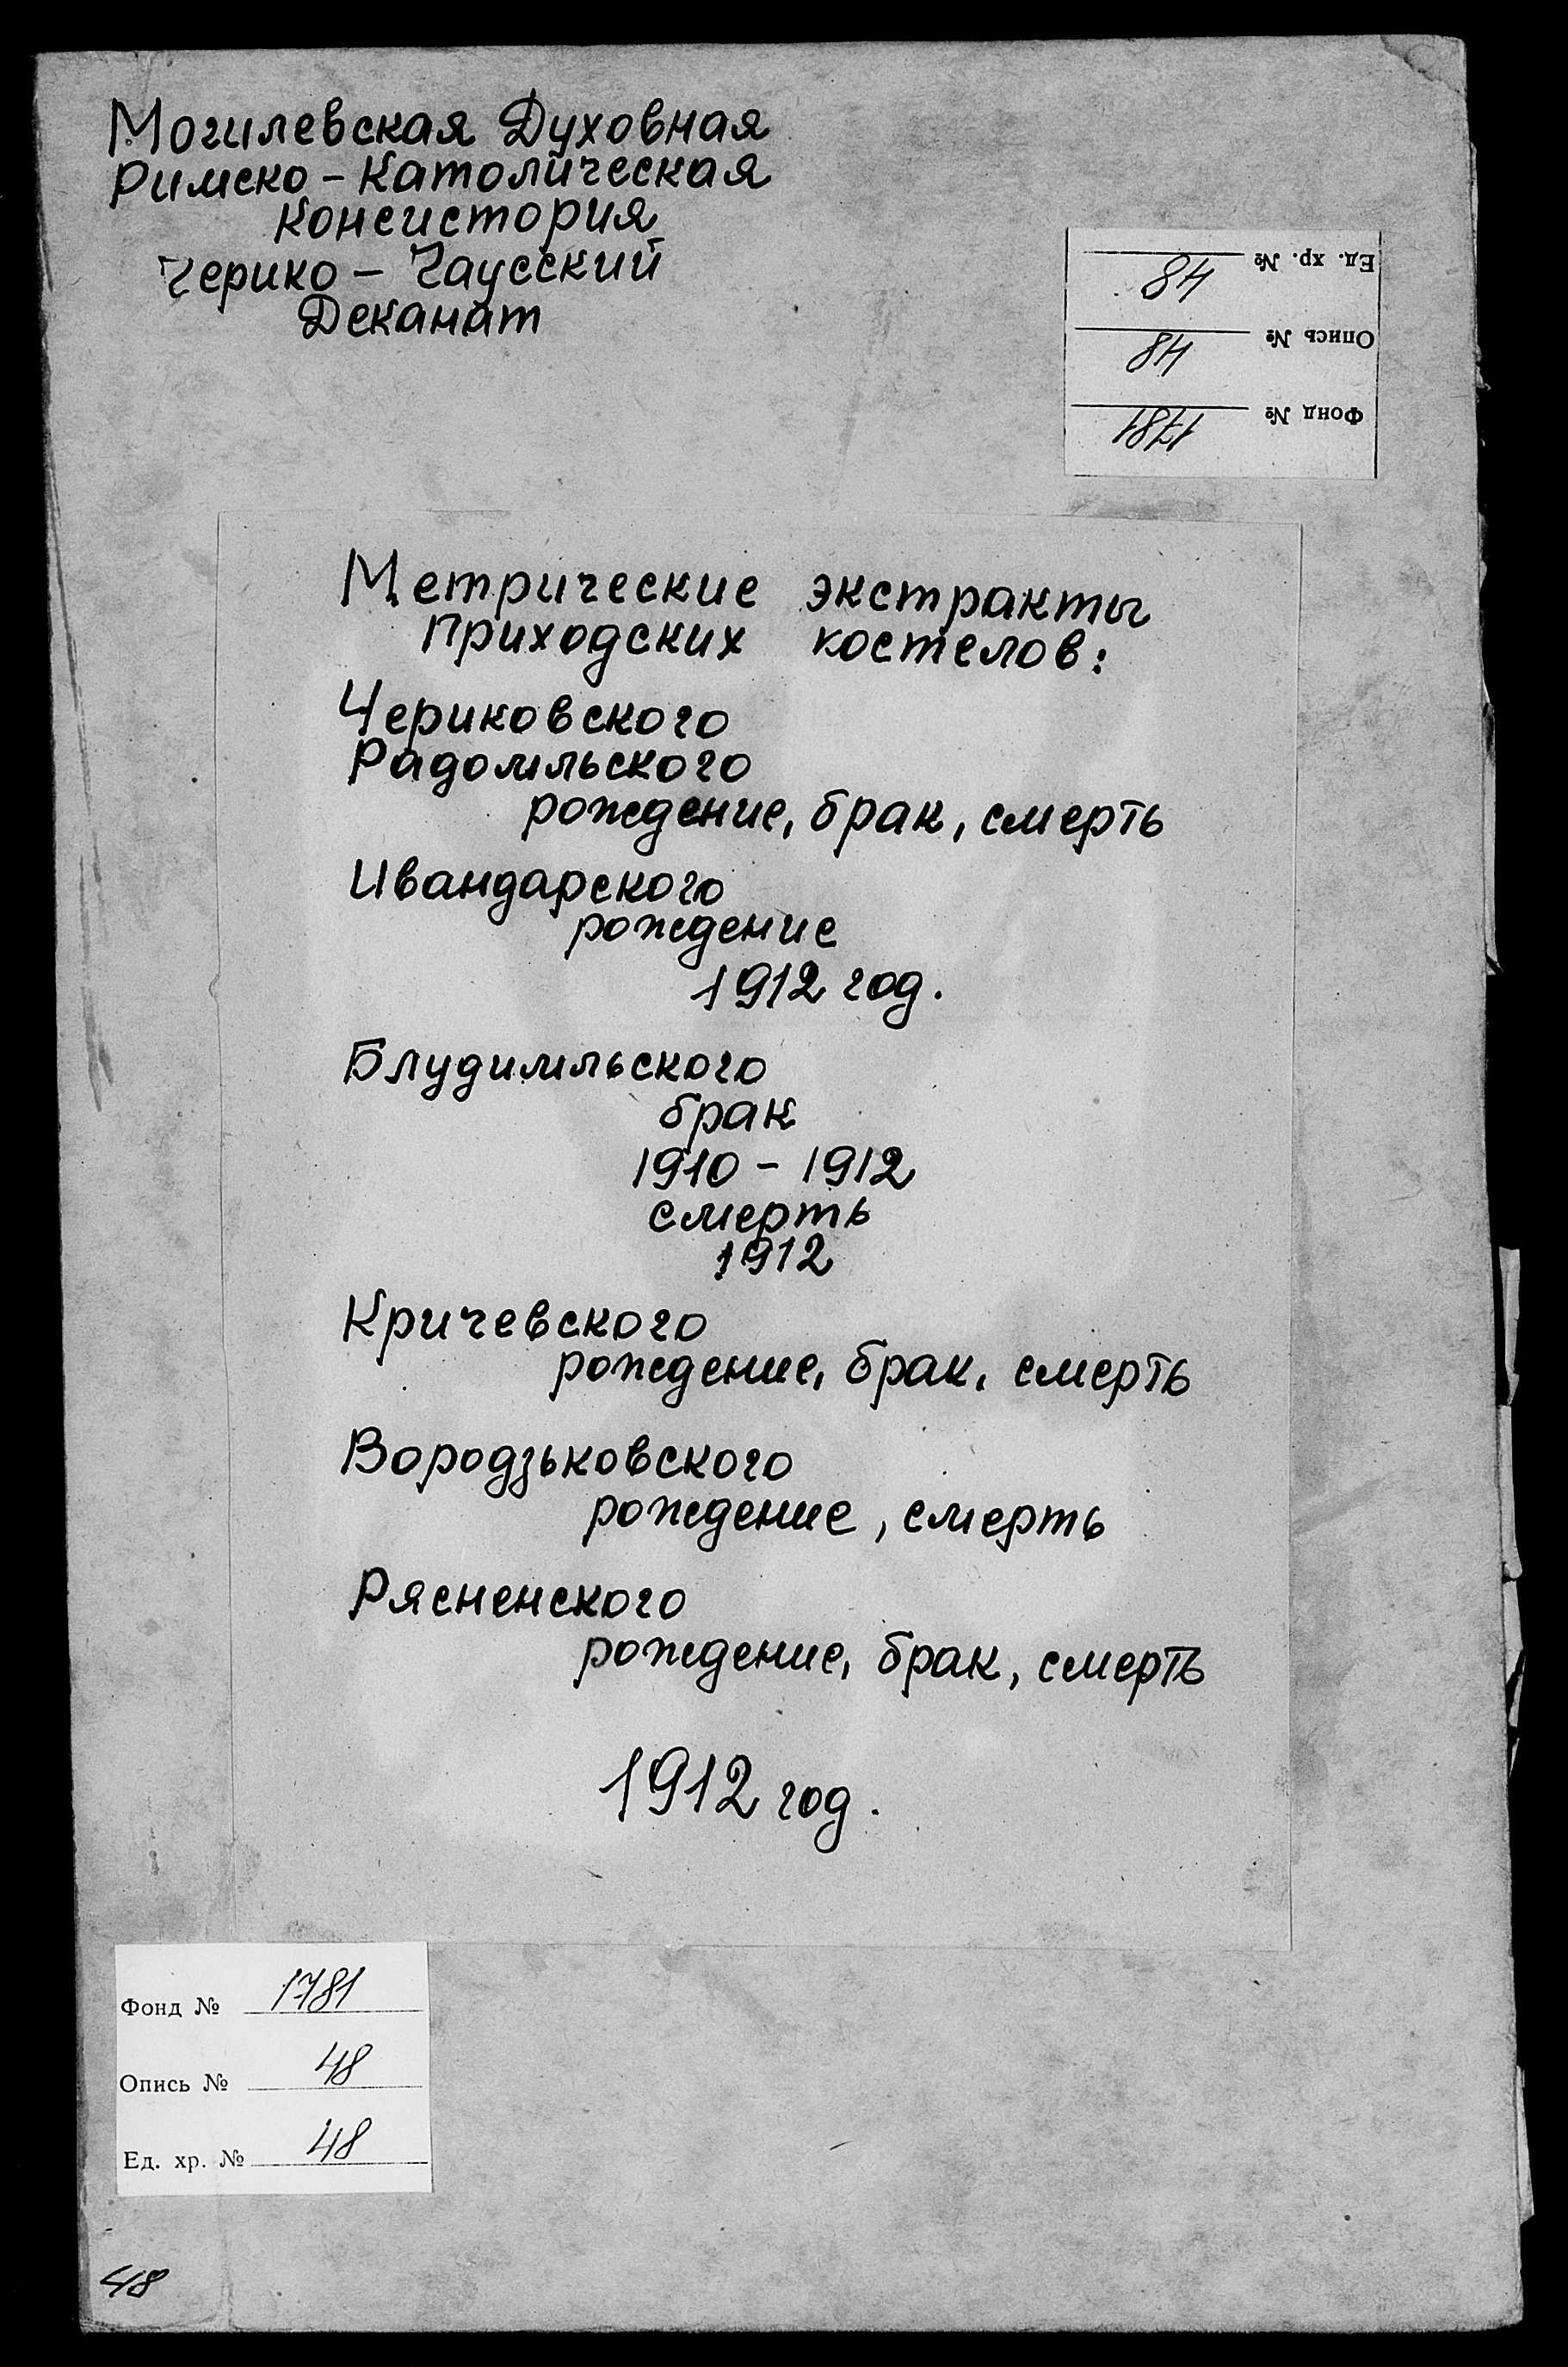 Могилевская Духовная
Римско - Католическая
Консистория
Черико - Чаусский
Деканат
Ед. хр. № 48
Опись № 48
Фонд № 1781
Метрические экстракты
приходских костелов:
Чериковского
Радомльского
рождение, брак, смерть
Ивандарского
рождение
1912 год.
Блудимльского
брак
1910 - 1912
смерть
1912
Кричевского
рождение, брак, смерть
Вородзьковского
рождение, смерть
Рясненского
рождение, брак, смерть
1912 год.
Фонд № 1781
Опись № 48
Ед. хр. № 48
48